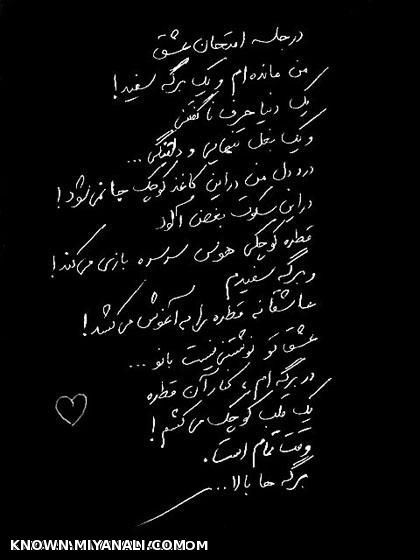 در جلسه امتحان عشق
من مانده‌ام و یک برگه سفید!
یک دنیا حرف ناگفتنی
و یک بغل تنهایی و دلتنگی...
درد دل من در این کاغذ کوچک جا نمی‌شود!
در این سکوت بغض آلود
قطره کوچکی هوس سرسره بازی می‌کند!
و برگه سفیدم
عاشقانه قطره را به آغوش می‌کشد!
عشق تو نوشتنی نیست بانو...
در برگه‌ام، کنار آن قطره
یک قلب کوچک می‌کشم!
وقت تمام است.
برگه ها بالا...
KNOWN.MIYANALI.COM